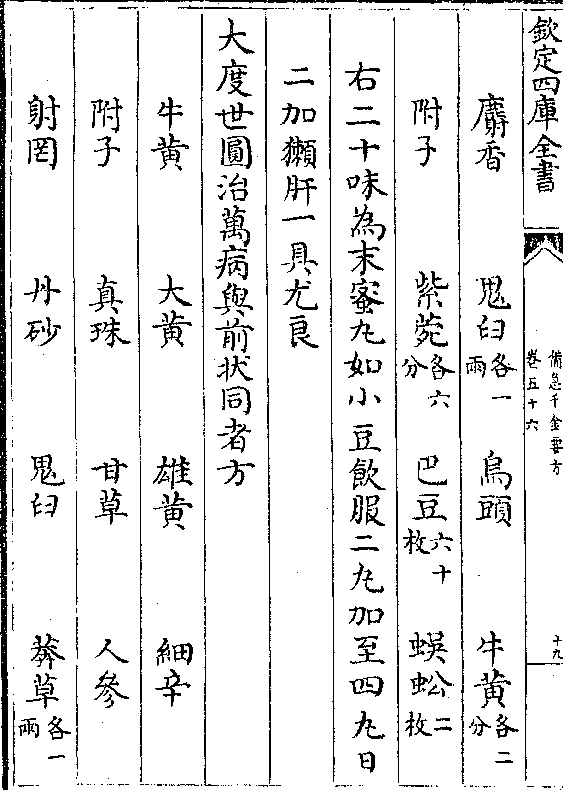 欽定四庫全書
備急千金要方
卷五十六
十九
麝香 鬼臼各一兩 烏頭 牛黄各二分
附子 紫菀各六分 巴豆六十枚 蜈蚣二枚
右二十味為末蜜丸如小豆飲服二丸加至四丸日
二加獺肝一具尤良
大度世圓治萬病與前状同者方
牛黄 大黄 雄黄 細辛
附子 真珠 甘草 人參
射罔 丹砂 鬼臼 莽草各一兩